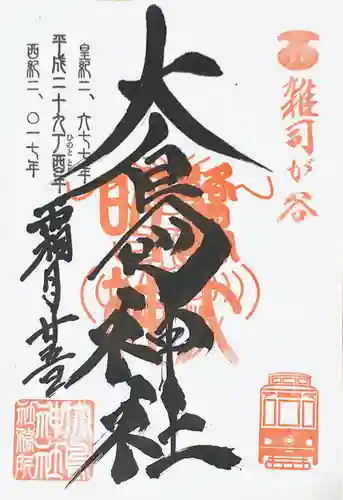 雑司が谷
大鳥神社
皇紀二、六七七年
平成二十九丁酉年
ひのととり
西紀二、〇一七年
霜月廿
大鳥
神社
社務所